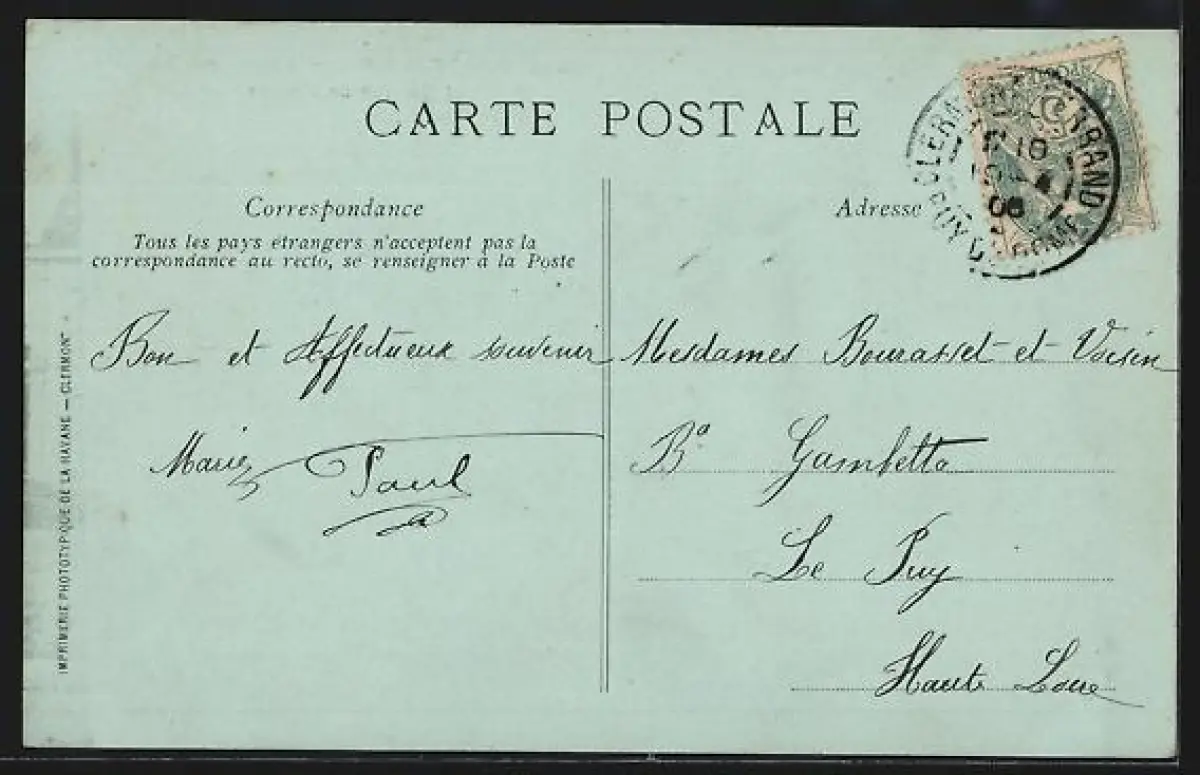 CARTE POSTALE
Correspondance
Tous les pays étrangers n'acceptent pas la
correspondance au recto, se renseigner à la Poste
Bon et Affectueux souvenir
Marie Paul
IMPRIMERIE PHOTOTYPIQUE DE LA HAVANE — CLERMONT
Adresse
CLERMONT FERRAND
PUY DE DOME
Mesdames Bourasset et Voisin
Bd Gambetta
Le Puy
Haute Loire